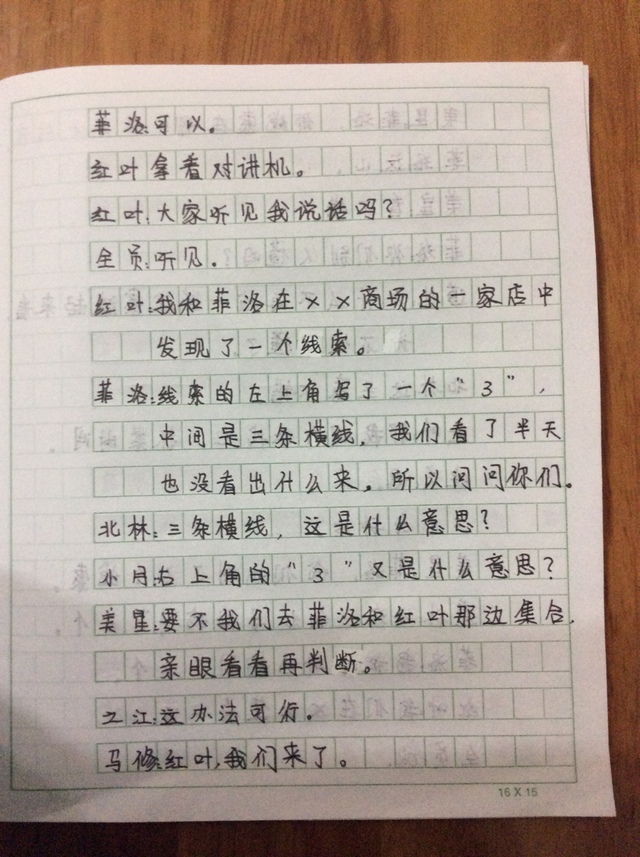 菲洛:可以。
红叶拿看对讲机。
红叶:大家听见我说话吗?
全员:听见。
红叶:我和菲洛在××商场的一家店中
发现了一个线索。
菲洛:线索的左上角写了一个“3”,
中间是三条横线,我们看了半天
也没看出什么来,所以问问你们。
北林:三条横线,这是什么意思?
小月:右上角的“3”又是什么意思?
美星:要不我们去菲洛和红叶那边集合,
亲眼看看再判断。
之江:这办法可行。
马修:红叶,我们来了。
16×15